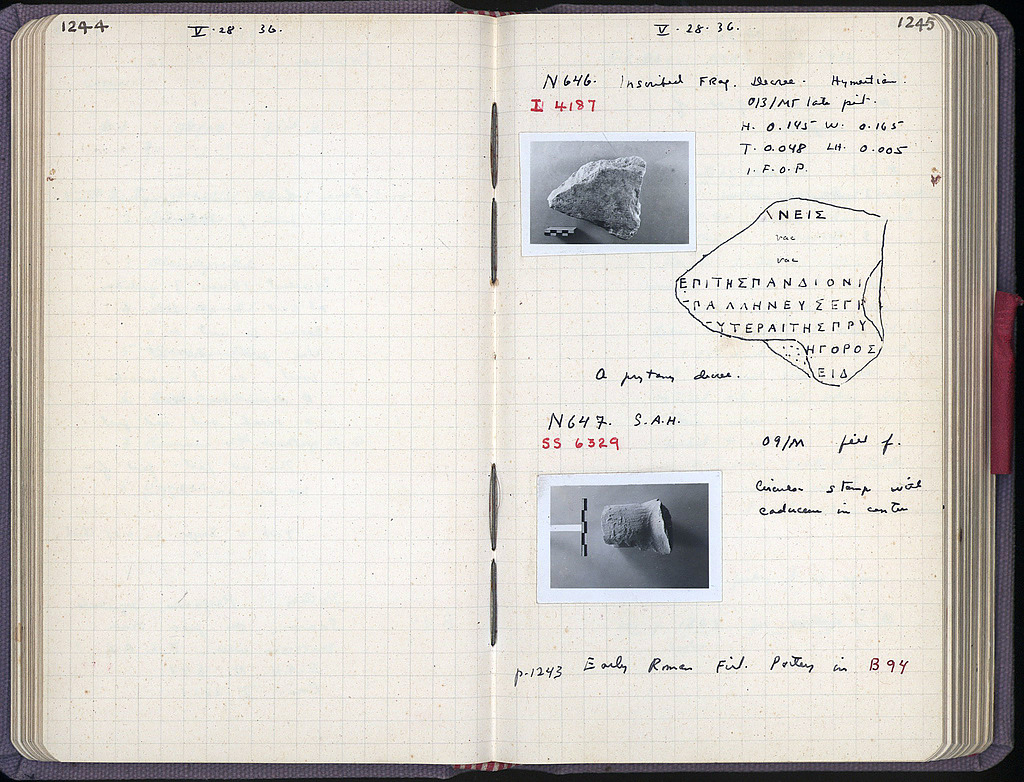 1244
V · 28 · 36.
V · 28 · 36.
1245
N646. Inscribed Frag. Decree. Hymettian.
I 4187
O13/ΜΓ late pit.
H. 0.145 W. 0.165
T. 0.048 LH. 0.005
1. F. O. P.
\ΝΕΙΣ
vac
vac
ΕΠΙΤΗΣΠΑΝΔΙΟΝΙ
ΠΑΛΛΗΝΕΥΣΕΓΙ
ΥΤΕΡΑΙΤΗΣΠΡΥ
ΗΓΟΡΟΣ
ΕΙΔ
A prytany decree.
N647. S.A.H.
SS 6329
O9/Μ fill f.
Circular stamp with
caduceus in center
p. 1243 Early Roman Fill. Pottery in B94